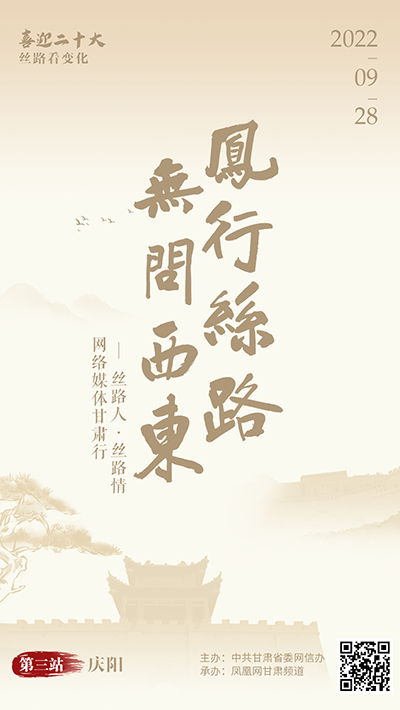 喜迎二十大
丝路看变化
2022
09
28
鳳行絲路
無問西東
— 丝路人·丝路情
网络媒体甘肃行
第三站 庆阳
主办：中共甘肃省委网信办
承办：凤凰网甘肃频道